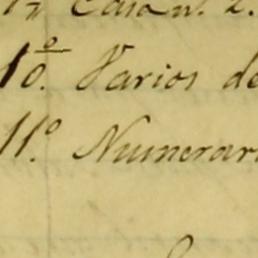 Casa n. 2.
10.º Varios de
11.º Numerari